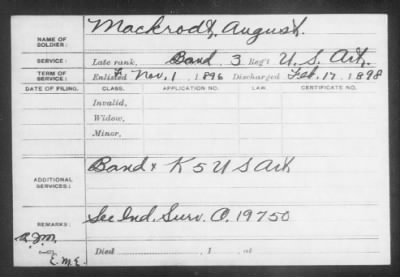 NAME OF SOLDIER: Mackrodt, August.
SERVICE: Late rank, Band 3 Reg't U. S. Art.
TERM OF SERVICE: Enlisted Nov. 1 1896 Discharged Feb. 17, 1898
DATE OF FILING. CLASS. APPLICATION NO. LAW. CERTIFICATE NO.
Invalid,
Widow,
Minor,
ADDITIONAL SERVICES: Band & K 5 U S Art
REMARKS: See Ind. Surv. C. 19750
L.M.E.
Died , 1 , at